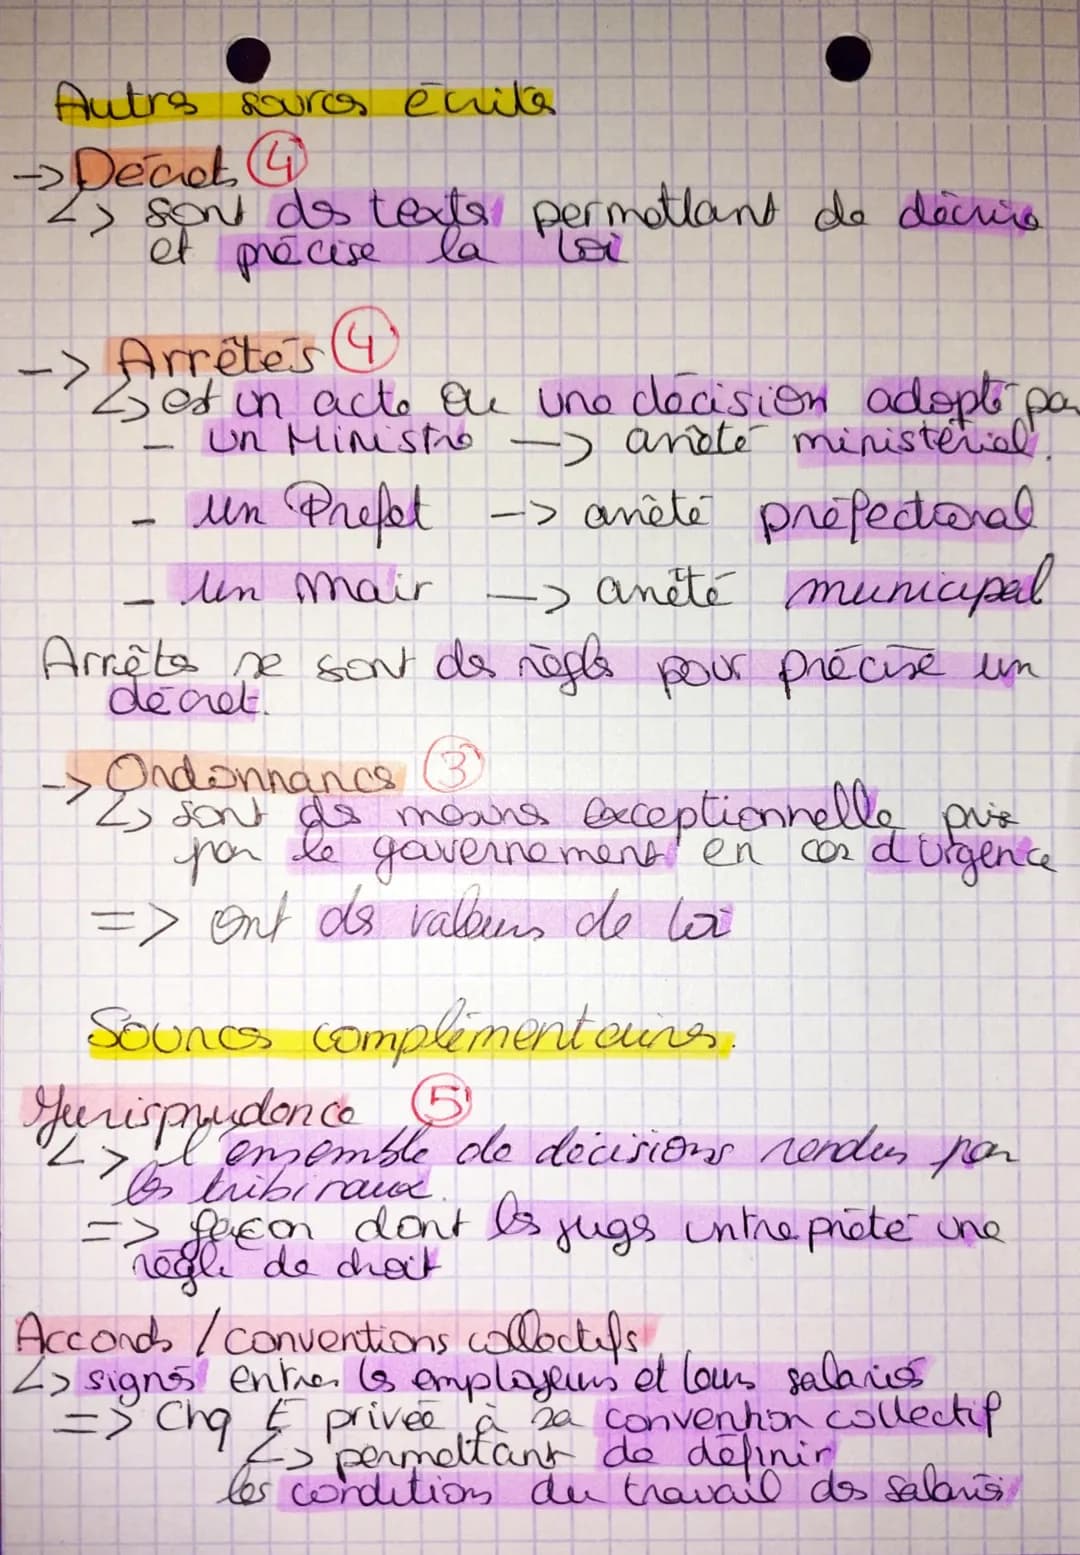 Autres sources écrites
-> Décret ④
↳ sont des textes permettant de décrire
et précise la loi
-> Arrêtés ④
↳ est un acte ou une décision adopté par
- un Ministre -> arrêté ministériel.
- un Préfet -> arrêté préfectoral
- un mair -> arrêté municipal
Arrêtes se sont des règles pour précisé un
décret.
-> Ordonnances ③
↳ sont des mesures exceptionnelle pris
par le gouvernement en cas d'urgence
=> ont des valeurs de loi
Sources complémentaires.
Jurisprudence ⑤
↳ l'ensemble de décisions rendus par
les tribunaux.
=> façon dont les juges intreprété une
règle de droit
Accords / conventions collectifs
↳ signés entres les employeurs et leurs salariés
=> Chq E privée à sa convention collectif
↳ permettant de définir
les conditions du travail des salariés